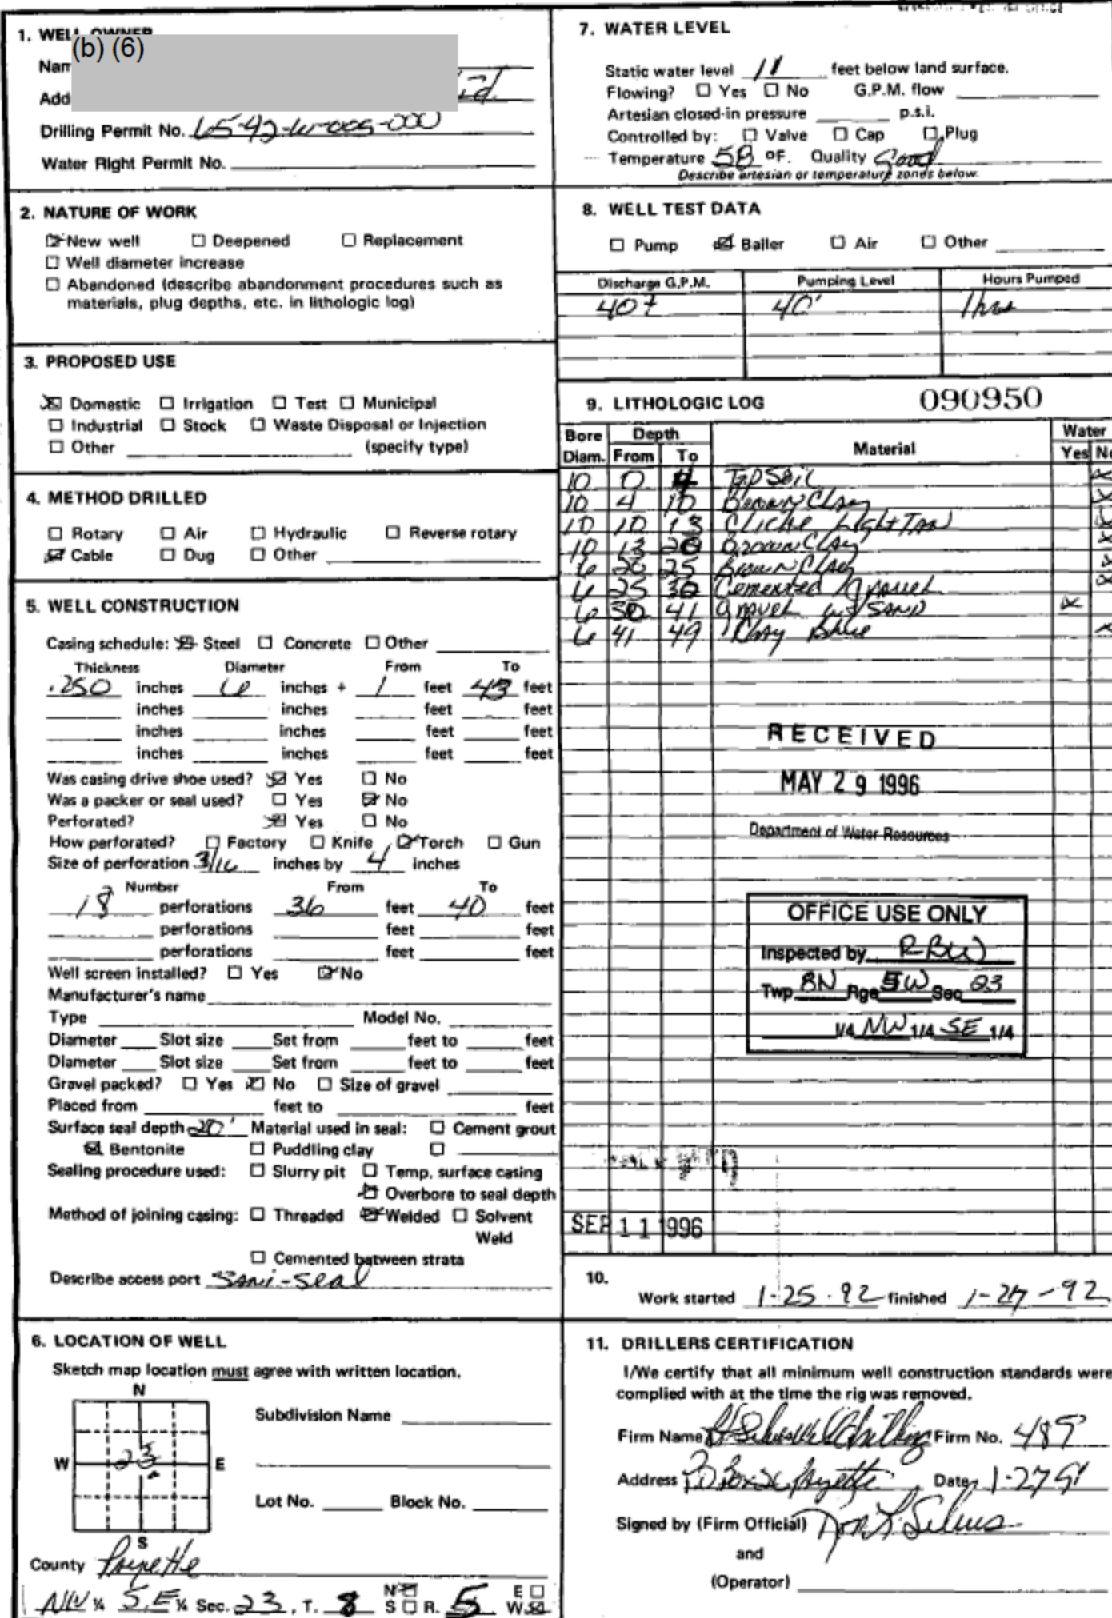 1. WELL OWNER
(b) (6)
Nam
Add
Drilling Permit No. 65-92-W-005-000
Water Right Permit No.
2. NATURE OF WORK
New well Deepened Replacement
Well diameter increase
Abandoned (describe abandonment procedures such as
materials, plug depths, etc. in lithologic log)
3. PROPOSED USE
Domestic Irrigation Test Municipal
Industrial Stock Waste Disposal or Injection
Other (specify type)
4. METHOD DRILLED
Rotary Air Hydraulic Reverse rotary
Cable Dug Other
5. WELL CONSTRUCTION
Casing schedule: Steel Concrete Other
Thickness Diameter From To
.250 inches 6 inches + 1 feet 43 feet
inches inches feet feet
inches inches feet feet
inches inches feet feet
Was casing drive shoe used? Yes No
Was a packer or seal used? Yes No
Perforated? Yes No
How perforated? Factory Knife Torch Gun
Size of perforation 3/16 inches by 4 inches
Number From To
18 perforations 36 feet 40 feet
perforations feet feet
perforations feet feet
Well screen installed? Yes No
Manufacturer's name
Type Model No.
Diameter Slot size Set from feet to feet
Diameter Slot size Set from feet to feet
Gravel packed? Yes No Size of gravel
Placed from feet to feet
Surface seal depth 20' Material used in seal: Cement grout
Bentonite Puddling clay
Sealing procedure used: Slurry pit Temp. surface casing
Overbore to seal depth
Method of joining casing: Threaded Welded Solvent
Weld
Cemented between strata
Describe access port Sani-Seal
6. LOCATION OF WELL
Sketch map location must agree with written location.
N
Subdivision Name
W 23 E
Lot No. Block No.
S
County Payette
NW ¼ S.E ¼ Sec. 23, T. 8 N S R. 5 E W
7. WATER LEVEL
Static water level 11 feet below land surface.
Flowing? Yes No G.P.M. flow
Artesian closed-in pressure p.s.i.
Controlled by: Valve Cap Plug
Temperature 58 °F. Quality Good
Describe artesian or temperature zones below.
8. WELL TEST DATA
Pump Bailer Air Other
Discharge G.P.M. Pumping Level Hours Pumped
40+ 40' 1 hr
9. LITHOLOGIC LOG 090950
Bore Depth Material Water
Diam. From To Yes No
10 0 4 Top Soil X
10 4 10 Brown Clay X
10 10 13 Cliche Light Tan X
10 13 20 Brown Clay X
6 20 25 Brown Clay X
6 25 30 Cemented Gravel X
6 30 41 Gravel w/ SAND X
6 41 49 Clay Blue X
RECEIVED
MAY 29 1996
Department of Water Resources
OFFICE USE ONLY
Inspected by RBW
Twp 8N Rge 5W Sec 23
1/4 NW 1/4 SE 1/4
SEP 11 1996
10.
Work started 1-25-92 finished 1-27-92
11. DRILLERS CERTIFICATION
I/We certify that all minimum well construction standards were
complied with at the time the rig was removed.
Firm Name Drilling Firm No. 489
Address Payette Date 1-27-91
Signed by (Firm Official)
and
(Operator)